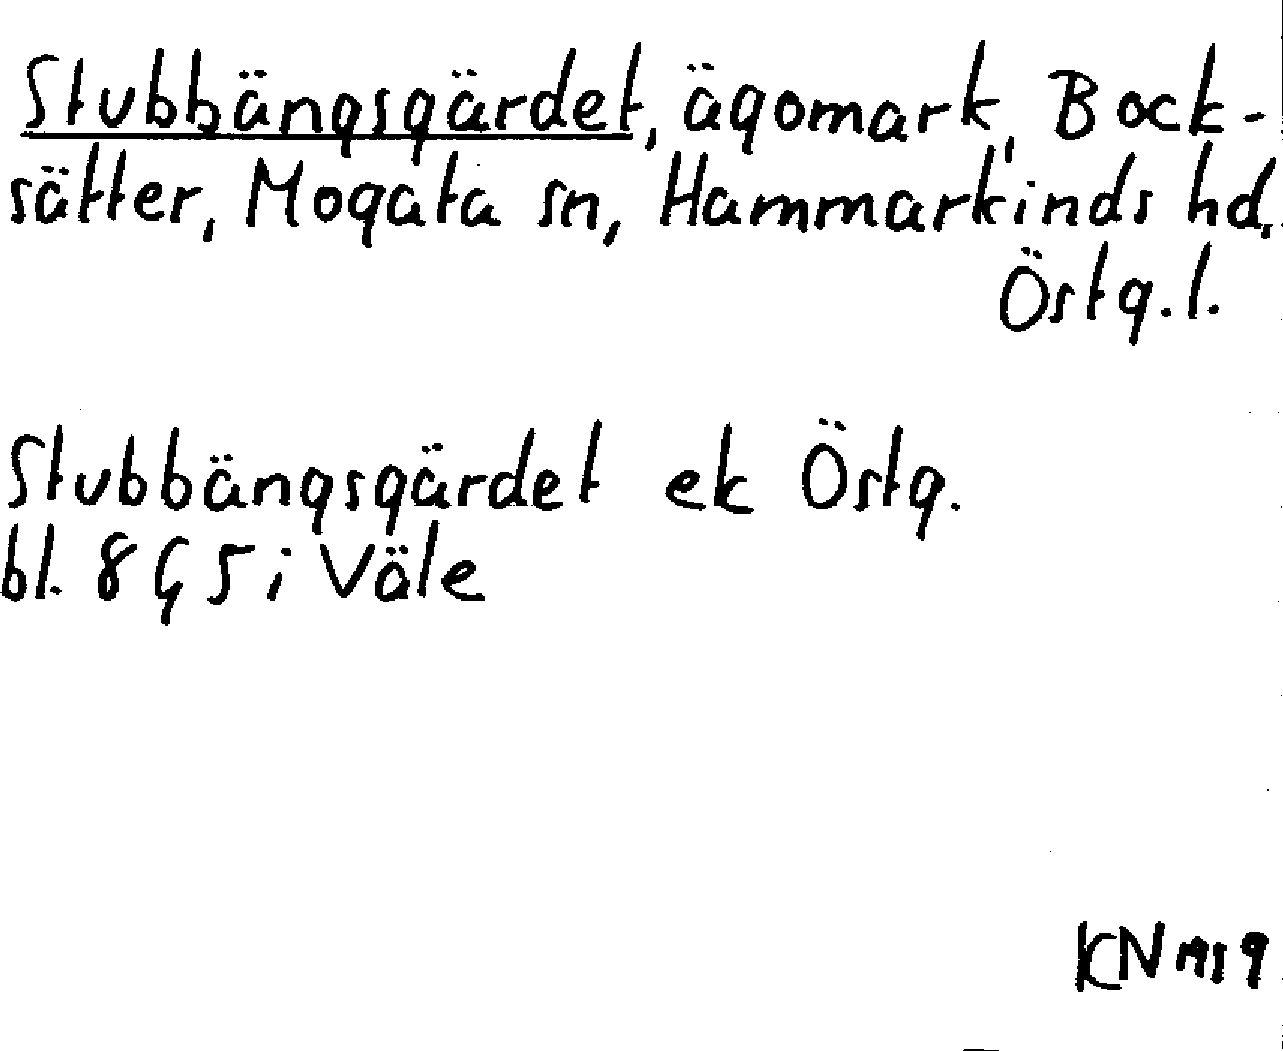 Stubbängsgärdet, ägomark, Bock-
sätter, Mogata sn, Hammarkinds hd,
Östg. l.
Stubbängsgärdet ek Östg.
bl. 8 G 5 i Väle
KN